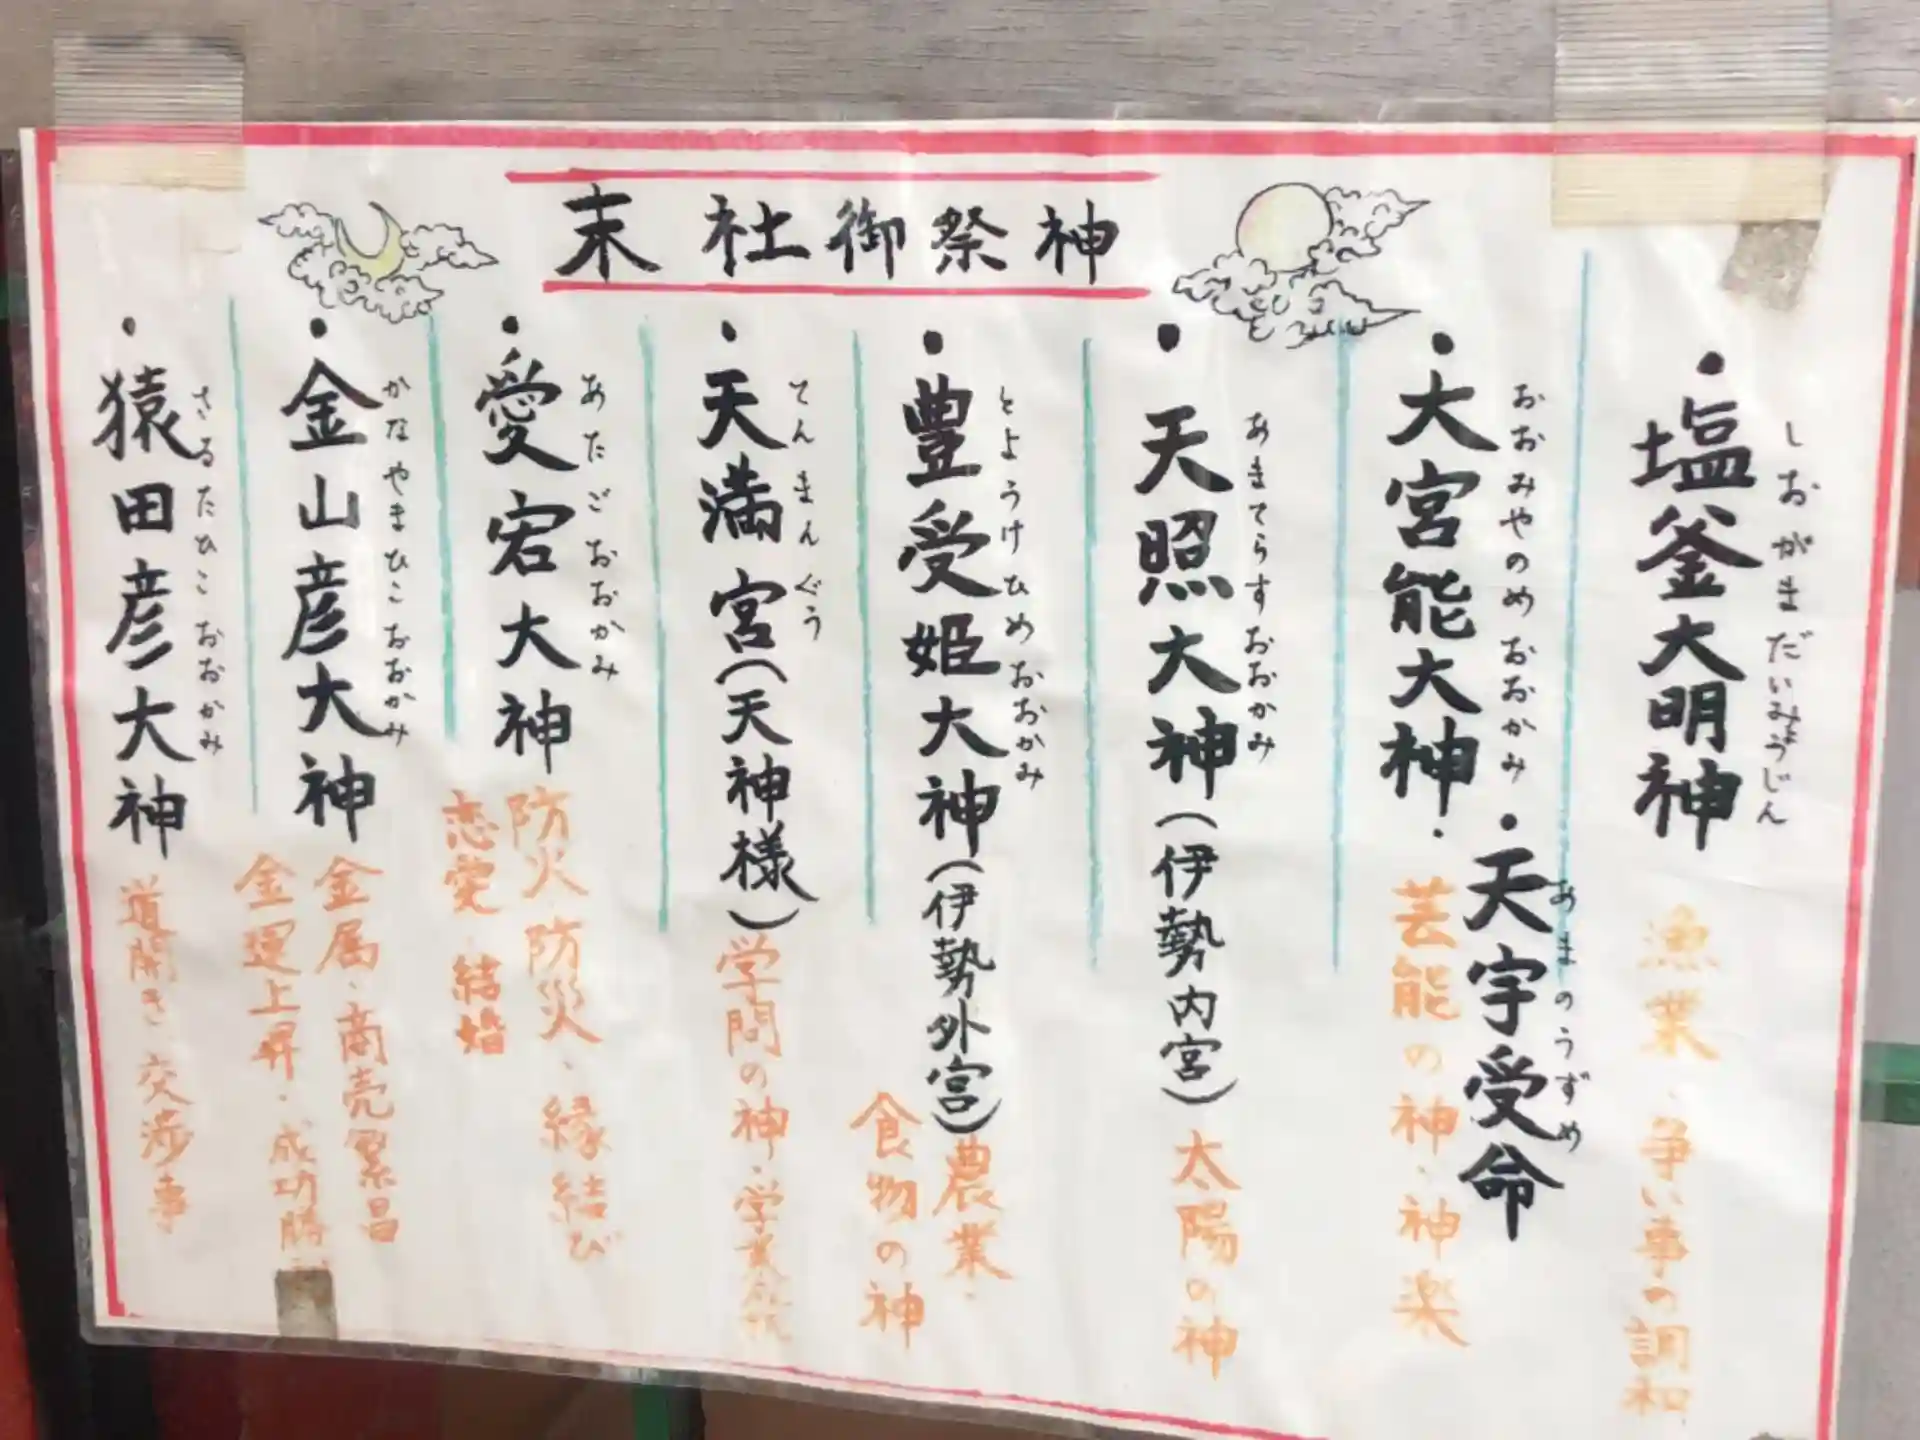 末社御祭神
・塩釜大明神
しおがまだいみょうじん
漁業・争い事の調和
・大宮能大神・
おおみやのめおおかみ
・天宇受命
あまのうずめ
芸能の神・神楽
・天照大神(伊勢内宮)
あまてらすおおかみ
太陽の神
・豊受姫大神(伊勢外宮)
とようけひめおおかみ
農業・
食物の神
・天満宮(天神様)
てんまんぐう
学問の神・学業
・愛宕大神
あたごおおかみ
防火・防災・縁結び
恋愛・結婚
・金山彦大神
かなやまひこおおかみ
金属・商売繁昌
金運上昇・成功勝
・猿田彦大神
さるたひこおおかみ
道開き・交渉事